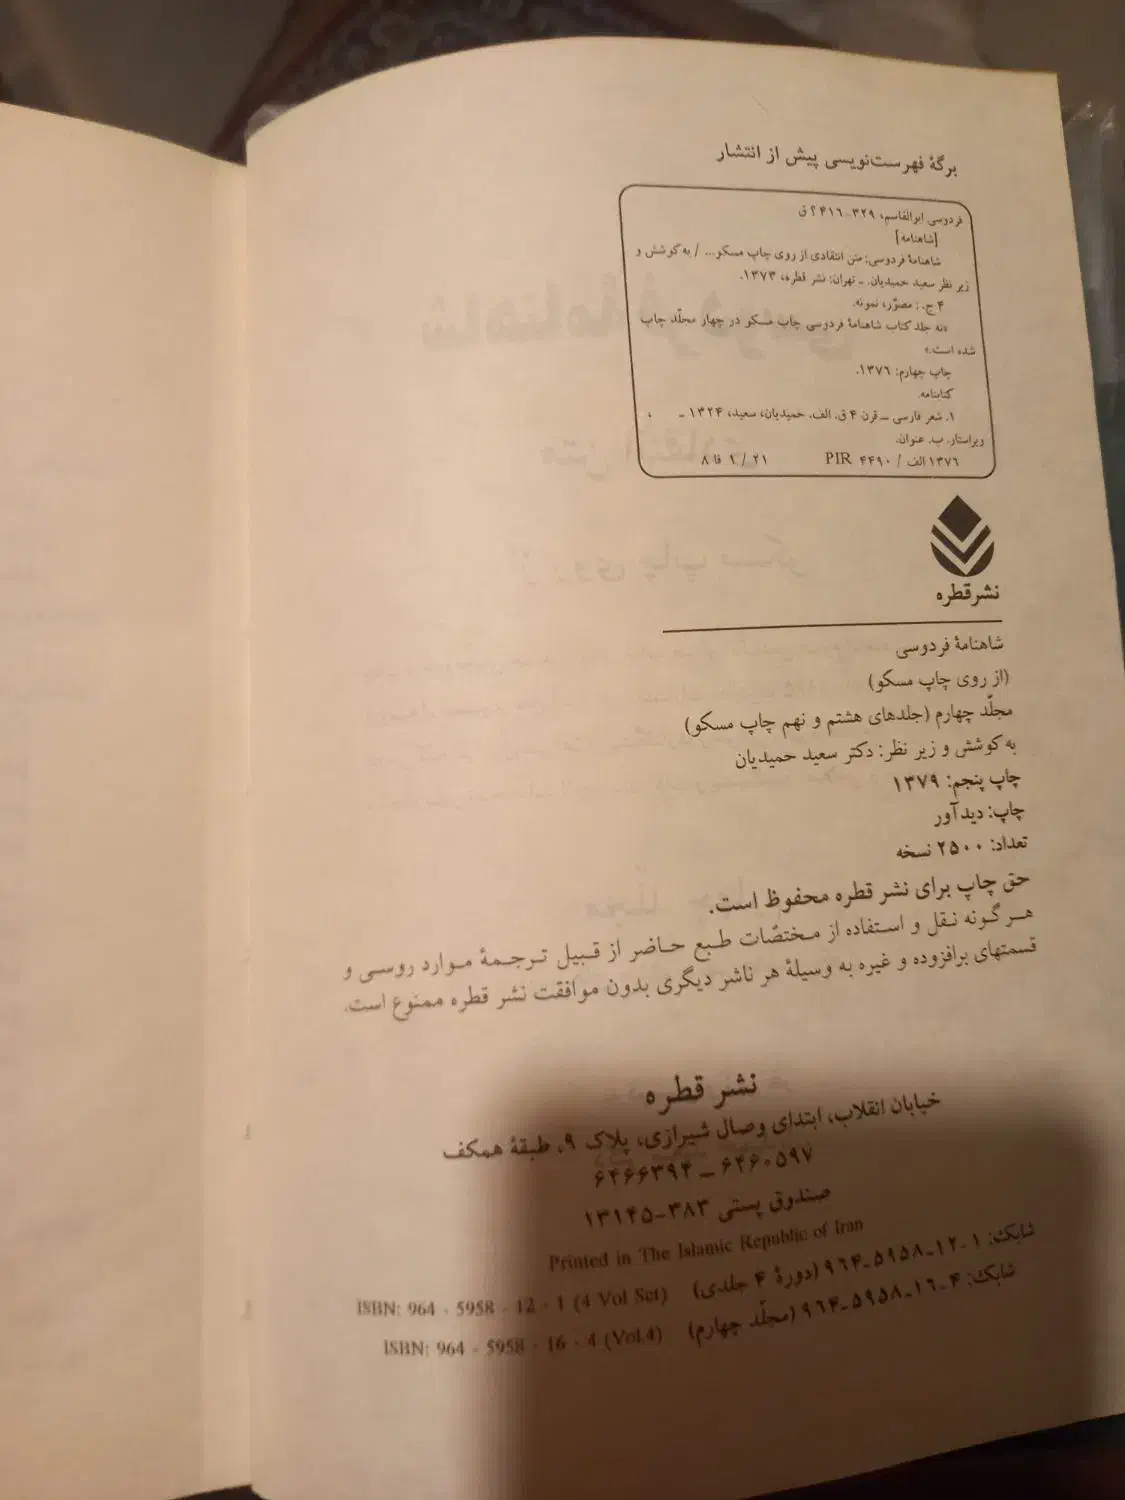 برگهٔ فهرست‌نویسی پیش از انتشار
فردوسی ابوالقاسم، ۳۲۹-۴۱۶؟ ق
[شاهنامه]
شاهنامهٔ فردوسی: متن انتقادی از روی چاپ مسکو... / به کوشش و
زیر نظر سعید حمیدیان. ـ تهران: نشر قطره، ۱۳۷۳.
۴ ج. : مصوّر، نمونه.
«نه جلد کتاب شاهنامهٔ فردوسی چاپ مسکو در چهار مجلّد چاپ
شده است.»
چاپ چهارم: ۱۳۷۶.
کتابنامه.
۱. شعر فارسی ــ قرن ۴ ق. الف. حمیدیان، سعید، ۱۳۲۴ ـ ،
ویراستار. ب. عنوان.
۱۳۷۶ الف / ۴۴۹۰ PIR ۲۱ / ۱ فا ۸
نشر قطره
شاهنامهٔ فردوسی
(از روی چاپ مسکو)
مجلّد چهارم (جلدهای هشتم و نهم چاپ مسکو)
به کوشش و زیر نظر: دکتر سعید حمیدیان
چاپ پنجم: ۱۳۷۹
چاپ: دیدآور
تعداد: ۲۵۰۰ نسخه
حق چاپ برای نشر قطره محفوظ است.
هرگونه نقل و استفاده از مختصّات طبع حاضر از قبیل ترجمهٔ موارد روسی و
قسمتهای برافزوده و غیره به وسیلهٔ هر ناشر دیگری بدون موافقت نشر قطره ممنوع است.
نشر قطره
خیابان انقلاب، ابتدای وصال شیرازی، پلاک ۹، طبقهٔ همکف
۶۴۶۰۵۹۷ ــ ۶۴۶۶۳۹۴
صندوق پستی ۳۸۳-۱۳۱۴۵
Printed in The Islamic Republic of Iran
شابک: ۱-۱۲-۵۹۵۸-۹۶۴ (دورهٔ ۴ جلدی) ISBN: 964 - 5958 - 12 - 1 (4 Vol Set)
شابک: ۴-۱۶-۵۹۵۸-۹۶۴ (مجلّد چهارم) ISBN: 964 - 5958 - 16 - 4 (Vol.4)